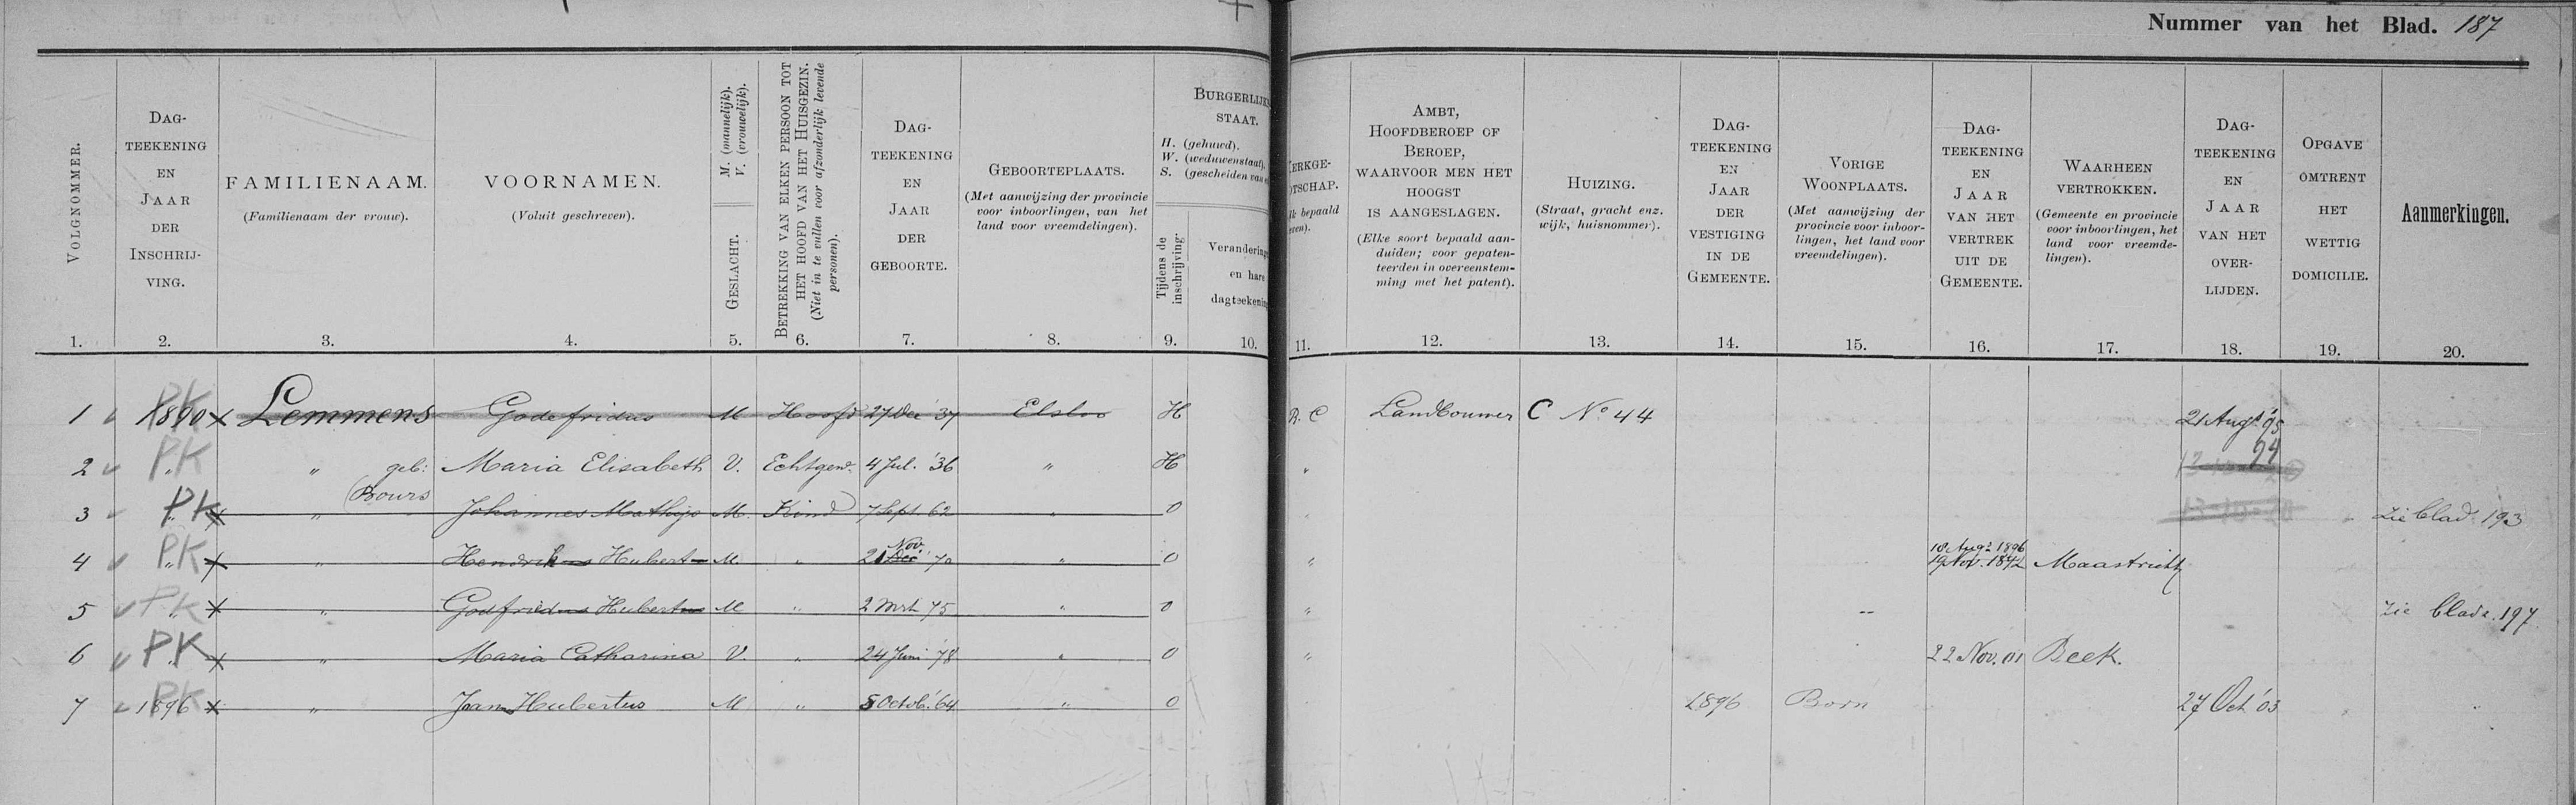 Nummer van het Blad. 187
VOLGNOMMER.
DAG-
TEEKENING
EN
JAAR
DER
INSCHRIJ-
VING.
FAMILIENAAM.
(Familienaam der vrouw).
VOORNAMEN.
(Voluit geschreven).
M. (mannelijk).
V. (vrouwelijk).
GESLACHT.
BETREKKING VAN ELKEN PERSOON TOT
HET HOOFD VAN HET HUISGEZIN.
(Niet in te vullen voor afzonderlijk levende
personen).
DAG-
TEEKENING
EN
JAAR
DER
GEBOORTE.
GEBOORTEPLAATS.
(Met aanwijzing der provincie
voor inboorlingen, van het
land voor vreemdelingen).
BURGERLIJKE
STAAT.
H. (gehuwd).
W. (weduwenstaat).
S. (gescheiden van
Tijdens de
inschrijving.
Verandering
en hare
dagteekening
KERKGE-
OTSCHAP.
bepaald
ven).
AMBT,
HOOFDBEROEP OF
BEROEP,
WAARVOOR MEN HET
HOOGST
IS AANGESLAGEN.
(Elke soort bepaald aan-
duiden; voor gepaten-
teerden in overeenstem-
ming met het patent).
HUIZING.
(Straat, gracht enz.
wijk, huisnommer).
DAG-
TEEKENING
EN
JAAR
DER
VESTIGING
IN DE
GEMEENTE.
VORIGE
WOONPLAATS.
(Met aanwijzing der
provincie voor inboor-
lingen, het land voor
vreemdelingen).
DAG-
TEEKENING
EN
JAAR
VAN HET
VERTREK
UIT DE
GEMEENTE.
WAARHEEN
VERTROKKEN.
(Gemeente en provincie
voor inboorlingen, het
land voor vreemde-
lingen).
DAG-
TEEKENING
EN
JAAR
VAN HET
OVER-
LIJDEN.
OPGAVE
OMTRENT
HET
WETTIG
DOMICILIE.
Aanmerkingen.
1. 2. 3. 4. 5. 6. 7. 8. 9. 10. 11. 12. 13. 14. 15. 16. 17. 18. 19. 20.
1 1890 PK x Lemmens Godefridus M Hoofd 27 Dec '37 Elsloo H R. C Landbouwer C No 44 21 Augt '95
2 " PK " geb: Maria Elisabeth V. Echtgen. 4 Jul. '36 " H " 24
(Bours
3 " PK x " Johannes Mathijs M. Kind 7 Sept. 62 " O " Zie blad 193
Nov. 18 Augt 1896
4 " PK x " Hendrikus Hubertus M. " 21 Dec '70 " O " 19 Nov. 1892 Maastricht
5 " PK x " Godfriedus Hubertus M " 2 Mrt 75 " O " Zie blad. 197
6 " PK x " Maria Catharina V. " 24 Juni '78 " O " 22 Nov. 01 Beek.
7 1896 PK x " Jan Hubertus M " 5 Octob. '64 " O 1896 Born 27 Oct '03